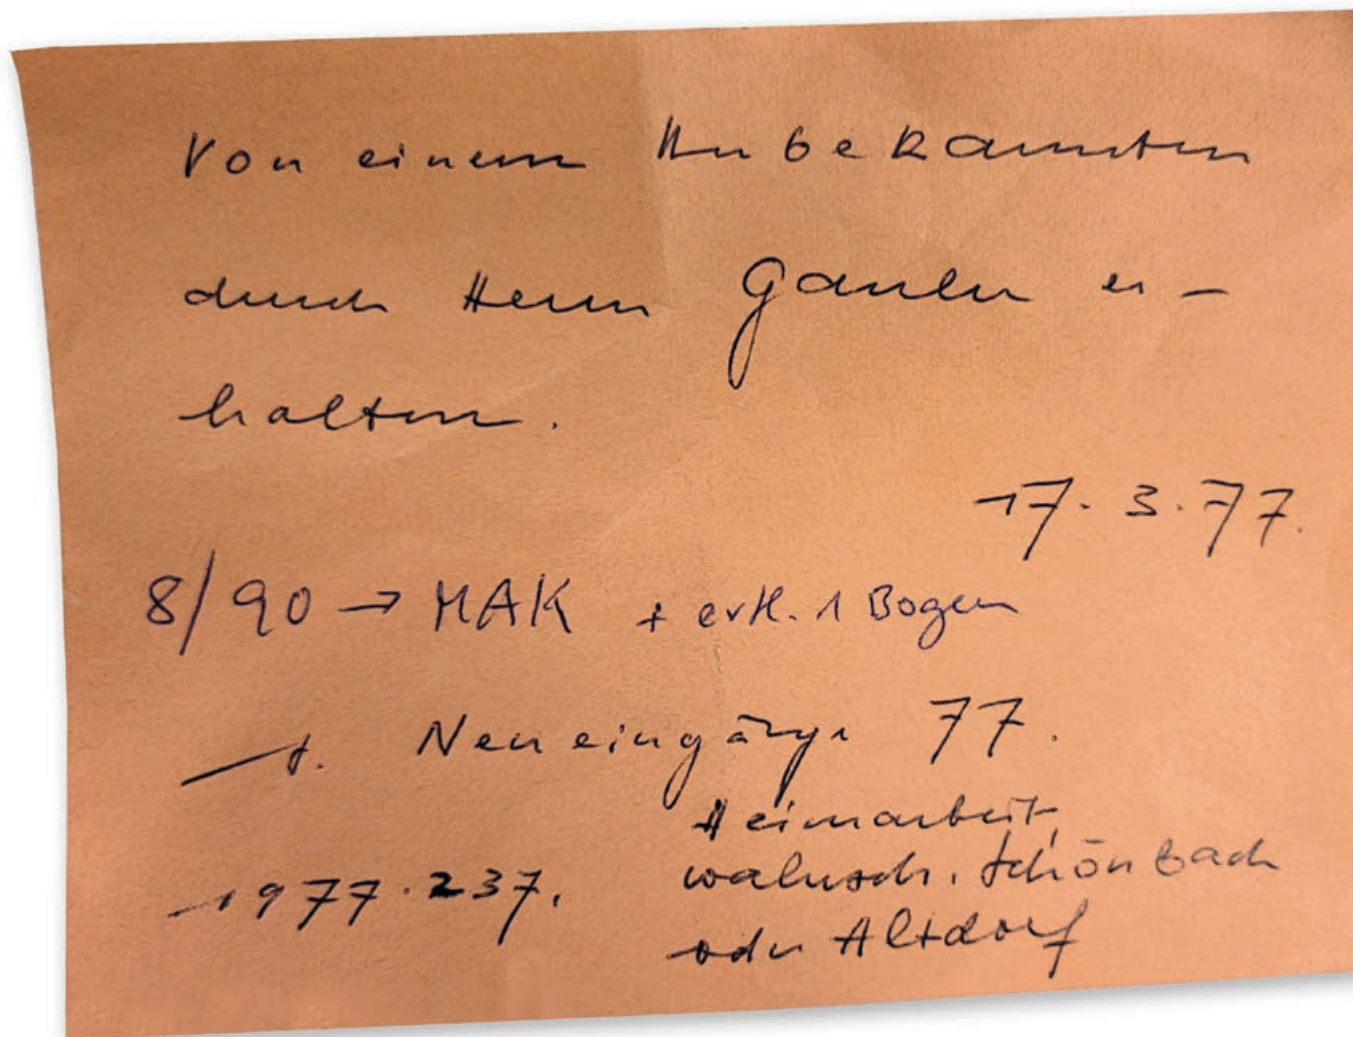 Von einem Unbekannten
durch Herrn er-
halten.
17.3.77.
8/90 → MAK + evtl. 1 Bogen
Neueingänge 77.
Heimarbeit,
1977.237.
wahrsch. Schönbach
oder Altdorf